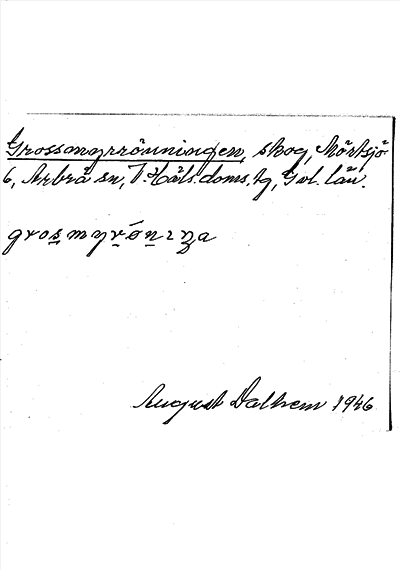 Grossmyrrönningen, skog, Mörtsjö
6, Arbrå sn, V. Häls. doms. tg, Gvl. län.
grosmyrö́nıŋa
August Dalhem 1946